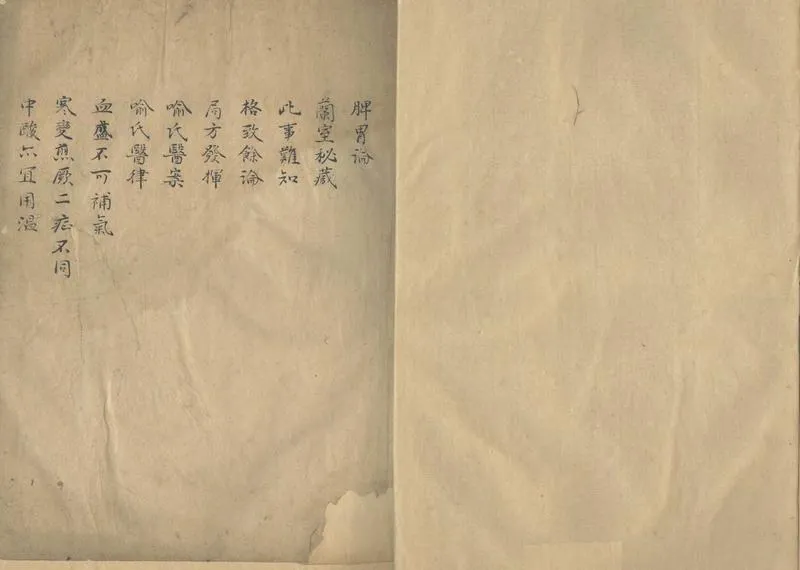 脾胃論
蘭室秘藏
此事難知
格致餘論
局方發揮
喻氏醫案
喻氏醫律
血盛不可補氣
寒變煎厥二症不同
中酸六宜用溫